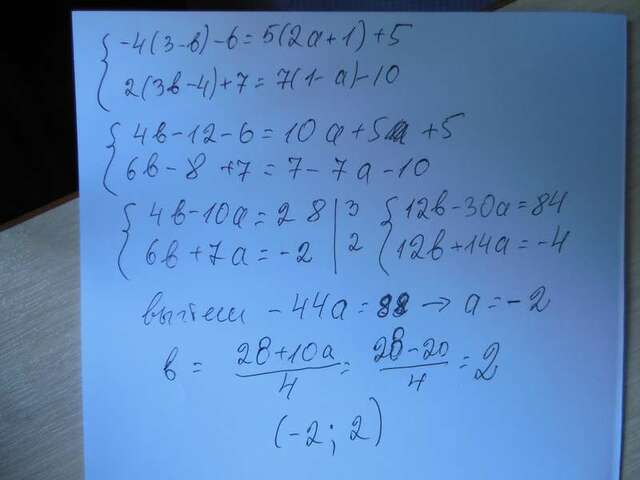 -4(3-в)-6=5(2a+1)+5
2(3в-4)+7=7(1-a)-10
4в-12-6=10a+5+5
6в-8+7=7-7a-10
4в-10a=28 | 3 12в-30a=84
6в+7a=-2 | 2 12в+14a=-4
вычтем -44a=88 → a=-2
в = 28+10a/4 = 28-20/4 = 2
(-2; 2)